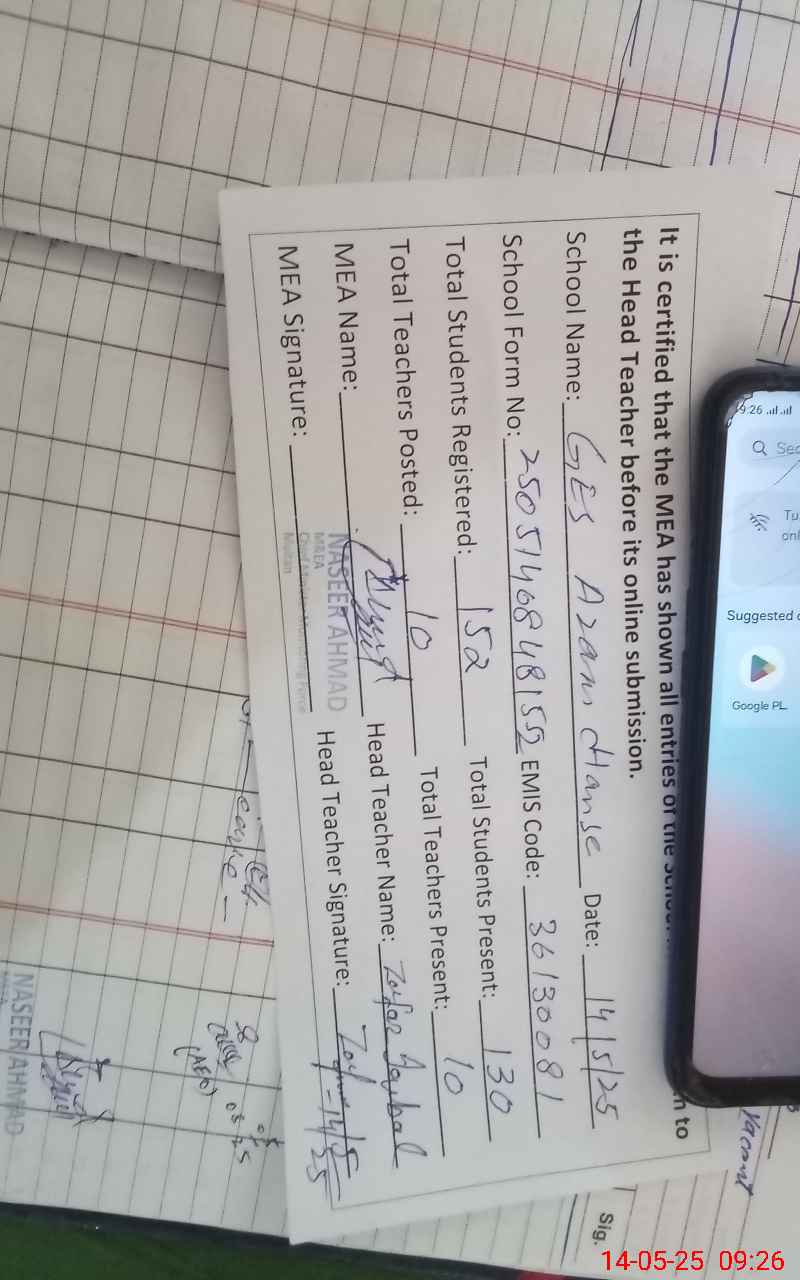 It is certified that the MEA has shown all entries of the School
n to
the Head Teacher before its online submission.
School Name: GES Azam Hanse Date: 14/5/25
School Form No: 2505146848155 EMIS Code: 36130081
Total Students Registered: 152 Total Students Present: 130
Total Teachers Posted: 10 Total Teachers Present: 10
MEA Name: NASEER AHMAD Head Teacher Name: Zafar Iqbal
M&EA
Chief Minister Monitoring Force
Multan
MEA Signature: Head Teacher Signature: 14/5/25
9:26
Sea
Tu
onl
Suggested
Google PL
Vacant
Sig.
(AEO)
NASEER AHMAD
14-05-25 09:26